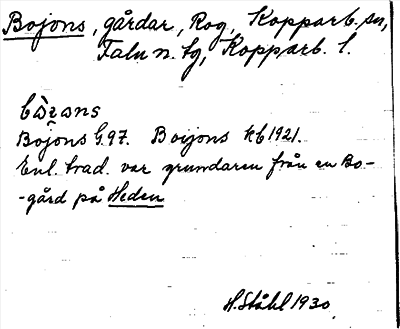 Bojons, gårdar, Rog, Kopparb. sn,
Falu n. tg, Kopparb. l.
Bojons G.97. Boijons kb 1921.
Enl. trad. var grundaren från en Bo-
-gård på Heden
H. Ståhl 1930